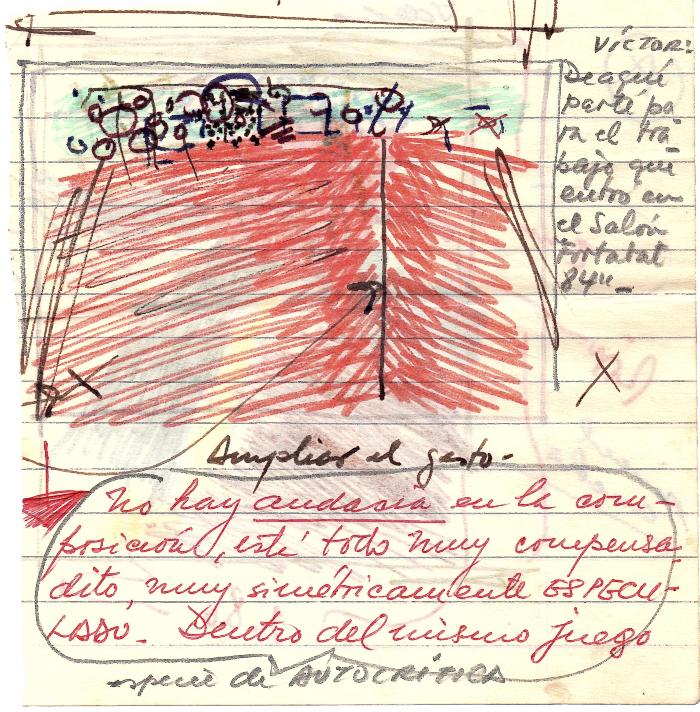 VÍCTOR:
De aquí
partí pa
ra el tra
bajo que
entró en
el Salón
Fortabat
84" -
Ampliar el gesto -
No hay audasia en la com-
posición, esté todo muy compensa
dito, muy simétricamente ESPECU-
LADO. Dentro del mismo juego
especie de AUTOCRÍTICA